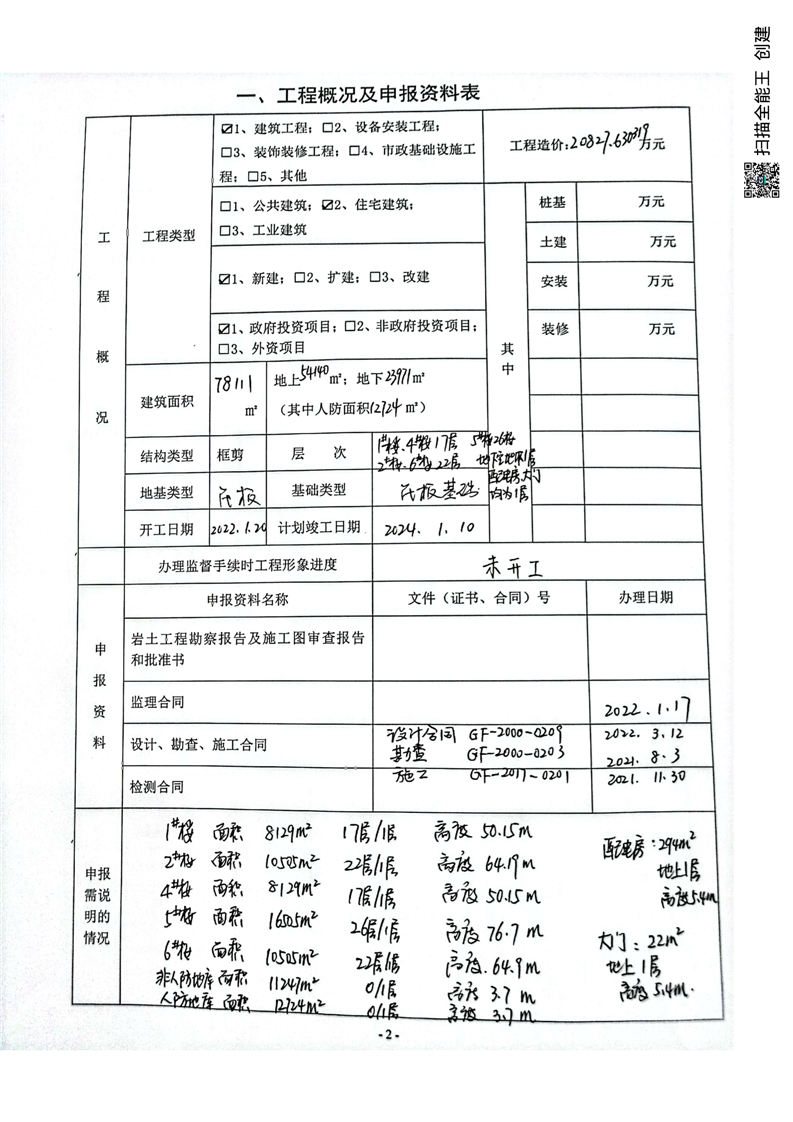 扫描全能王 创建
一、工程概况及申报资料表
工程概况
工程类型
☑1、建筑工程；□2、设备安装工程；
□3、装饰装修工程；□4、市政基础设施工
程；□5、其他
工程造价：20827.630319万元
□1、公共建筑；☑2、住宅建筑；
□3、工业建筑
☑1、新建；□2、扩建；□3、改建
☑1、政府投资项目；□2、非政府投资项目；
□3、外资项目
其中
桩基 万元
土建 万元
安装 万元
装修 万元
建筑面积
78111
㎡
地上54140㎡；地下23971㎡
（其中人防面积12724㎡）
结构类型 框剪 层 次
1#楼、4#楼17层 5#楼26层
2#楼、6#楼22层 地下车地库1层
配电房、大门
均为1层
地基类型 筏板 基础类型 筏板基础
开工日期 2022.1.20 计划竣工日期 2024.1.10
办理监督手续时工程形象进度 未开工
申报资料
申报资料名称 文件（证书、合同）号 办理日期
岩土工程勘察报告及施工图审查报告
和批准书
监理合同 2022.1.17
设计、勘查、施工合同
设计合同 GF-2000-0209 2022.3.12
勘查 GF-2000-0203 2021.8.3
检测合同
施工 GF-2017-0201 2021.11.30
申报
需说
明的
情况
1#楼 面积 8129m² 17层/1层 高度 50.15m
2#楼 面积 10505m² 22层/1层 高度 64.19m
4#楼 面积 8129m² 17层/1层 高度 50.15m
5#楼 面积 16505m² 26层/1层 高度 76.7m
6#楼 面积 10505m² 22层/1层 高度.64.9m
非人防地库面积 11247m² 0/1层 高度 3.7m
人防地库 面积 12724m² 0/1层 高度 3.7m
配电房：294m²
地上1层
高度5.4m
大门：22m²
地上1层
高度5.4m.
- 2 -